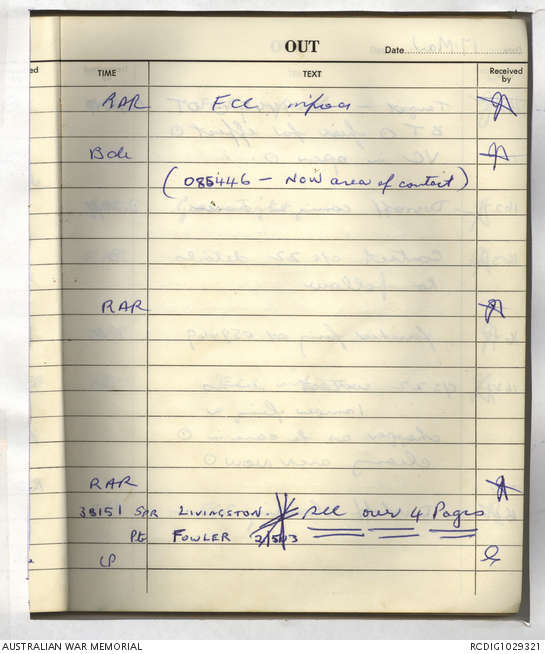 OUT
Date
ed TIME TEXT Received by
RAR FCC
Bde
(085446 - Now area of contact)
RAR
RAR
38151 SPR LIVINGSTON. See over 4 Pages
Pte FOWLER
CP
AUSTRALIAN WAR MEMORIAL RCDIG1029321